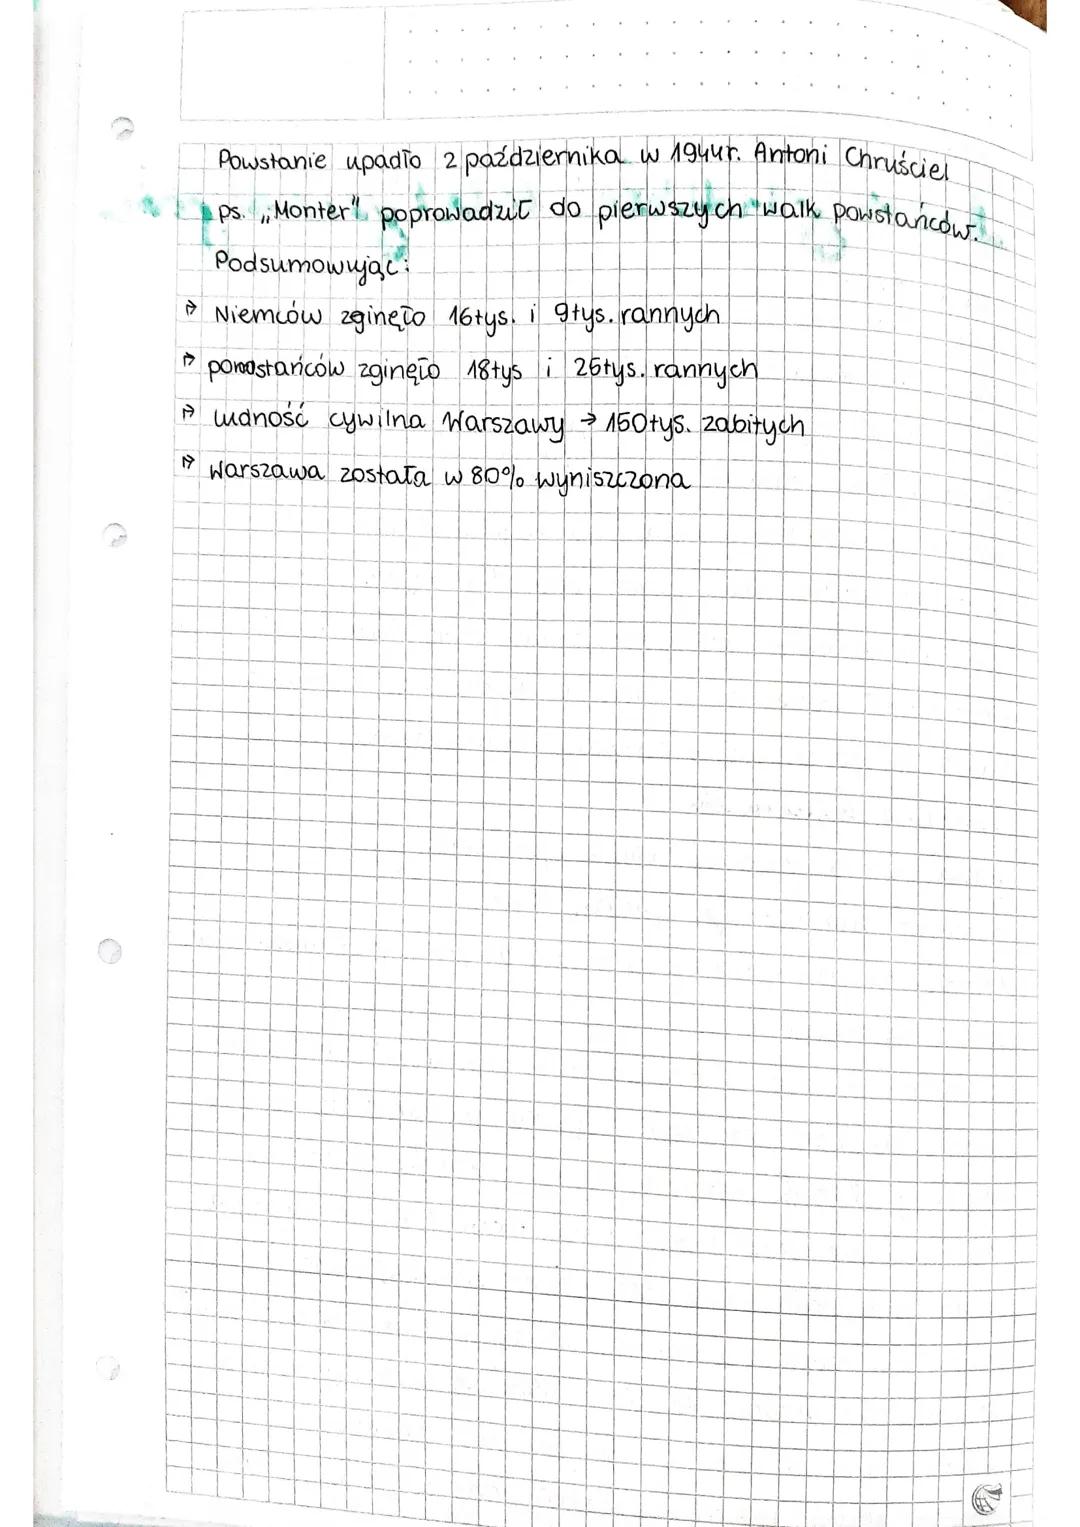 Powstanie upadło 2 października w 1944r. Antoni Chruściel
ps. „Monter" poprowadził do pierwszych walk powstańców.
Podsumowując:
⇒ Niemców zginęło 16tys. i 9tys. rannych
⇒ powstańców zginęło 18tys i 25tys. rannych
⇒ ludność cywilna Warszawy → 150tys. zabitych
⇒ Warszawa została w 80% wyniszczona